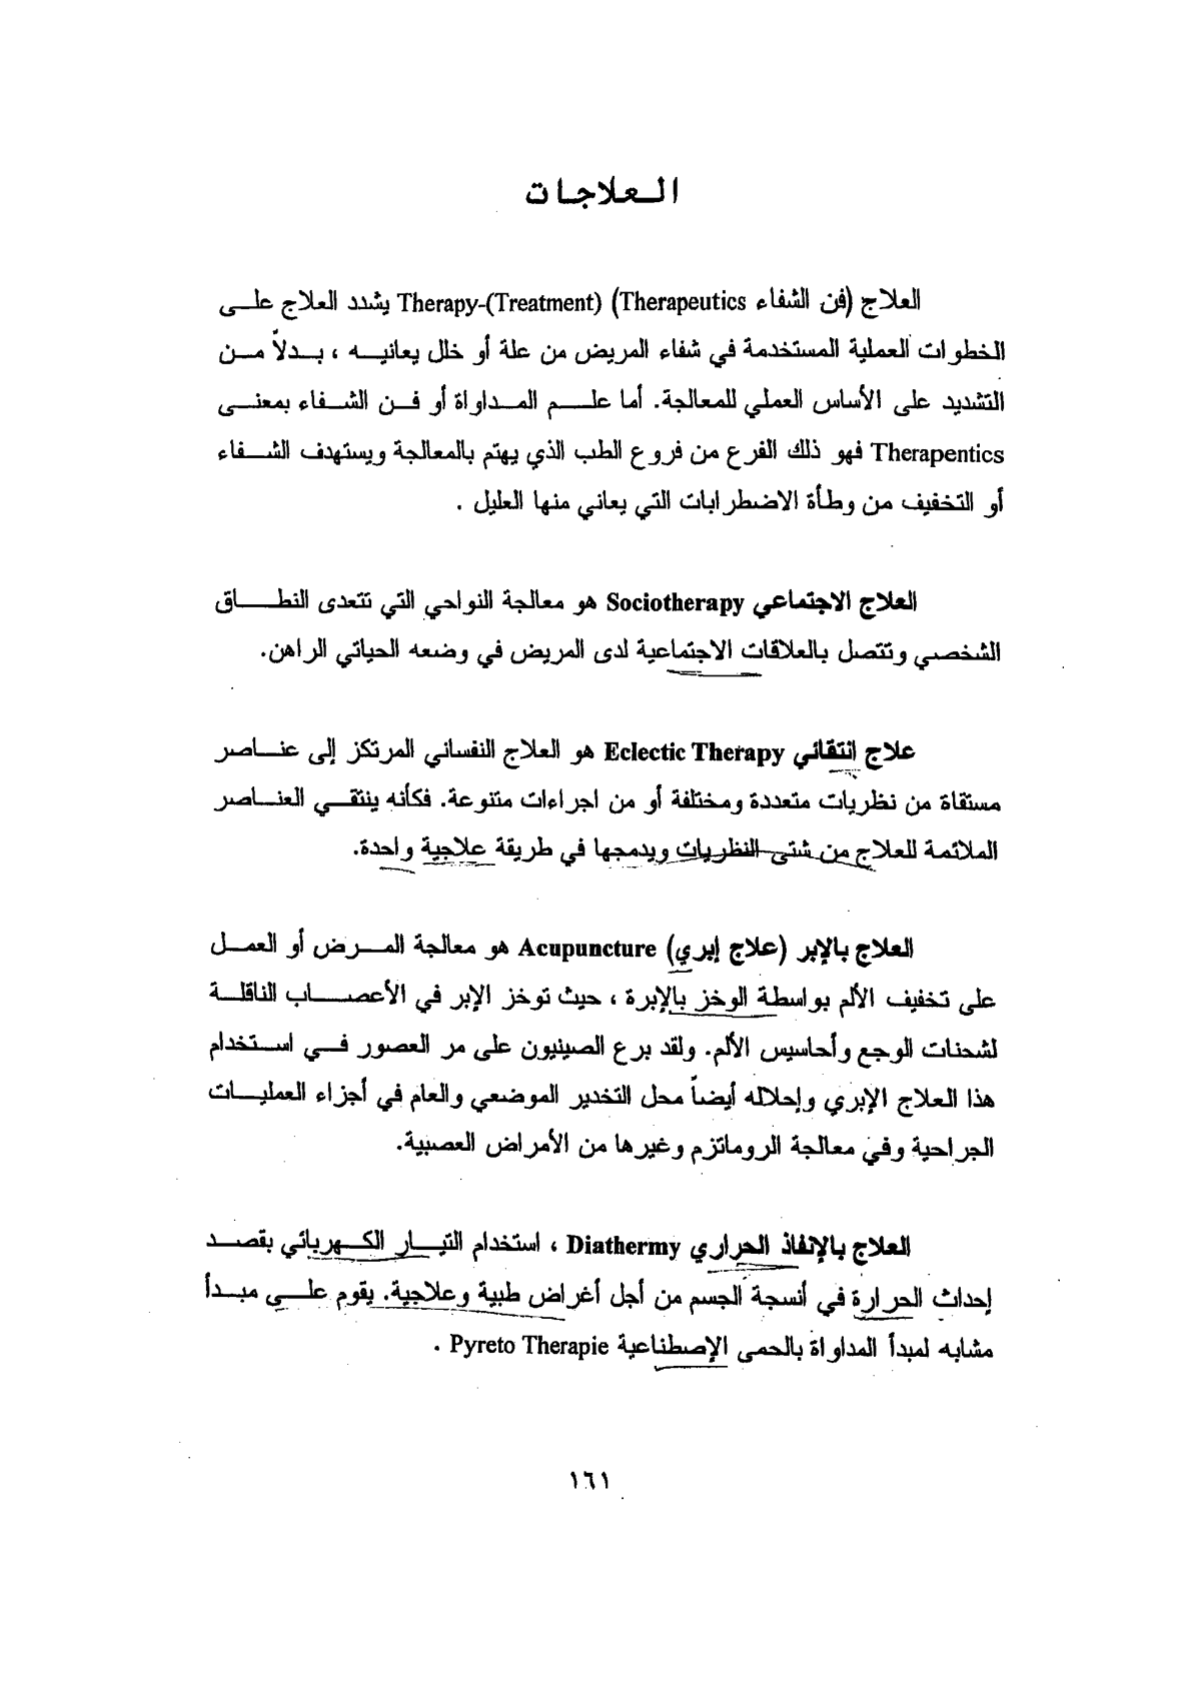 العلاجات
العلاج (فن الشفاء Therapeutics) Therapy-(Treatment) يشدد العلاج على
الخطوات العملية المستخدمة في شفاء المريض من علة أو خلل يعانيه ، بدلاً من
التشديد على الأساس العملي للمعالجة. أما علم المداواة أو فن الشفاء بمعنى
Therapentics فهو ذلك الفرع من فروع الطب الذي يهتم بالمعالجة ويستهدف الشفاء
أو التخفيف من وطأة الاضطرابات التي يعاني منها العليل .
العلاج الاجتماعي Sociotherapy هو معالجة النواحي التي تتعدى النطاق
الشخصي وتتصل بالعلاقات الاجتماعية لدى المريض في وضعه الحياتي الراهن.
علاج انتقائي Eclectic Therapy هو العلاج النفساني المرتكز إلى عناصر
مستقاة من نظريات متعددة ومختلفة أو من اجراءات متنوعة. فكأنه ينتقي العناصر
الملائمة للعلاج من شتى النظريات ويدمجها في طريقة علاجية واحدة.
العلاج بالإبر (علاج إبري) Acupuncture هو معالجة المرض أو العمل
على تخفيف الألم بواسطة الوخز بالإبرة ، حيث توخز الإبر في الأعصاب الناقلة
لشحنات الوجع وأحاسيس الألم. ولقد برع الصينيون على مر العصور في استخدام
هذا العلاج الإبري وإحلاله أيضاً محل التخدير الموضعي والعام في أجزاء العمليات
الجراحية وفي معالجة الروماتزم وغيرها من الأمراض العصبية.
العلاج بالإنفاذ الحراري Diathermy ، استخدام التيار الكهربائي بقصد
إحداث الحرارة في أنسجة الجسم من أجل أغراض طبية وعلاجية. يقوم على مبدأ
مشابه لمبدأ المداواة بالحمى الإصطناعية Pyreto Therapie .
١٦١